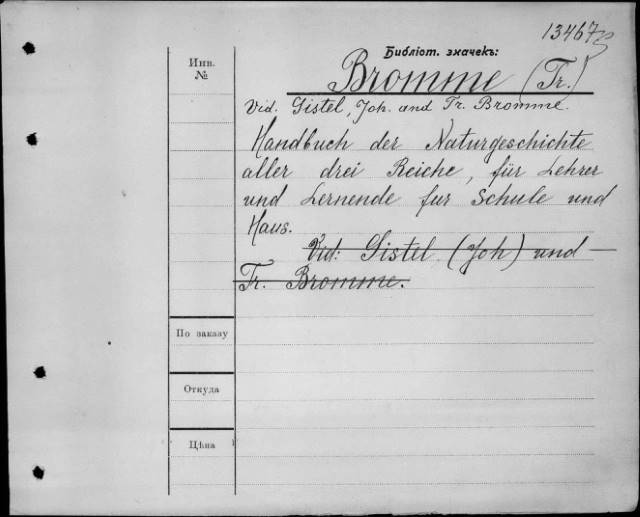 13467
Библіот. значекъ:
Инв.
№
Bromme (Tr.)
Vid. Gistel, Joh. and Tr. Bromme.
Handbuch der Naturgeschichte
aller drei Reiche, für Lehrer
und Lernende fur Schule und
Haus.
Vid: Gistel (Joh) und
Tr. Bromme.
По заказу
Откуда
Цѣна